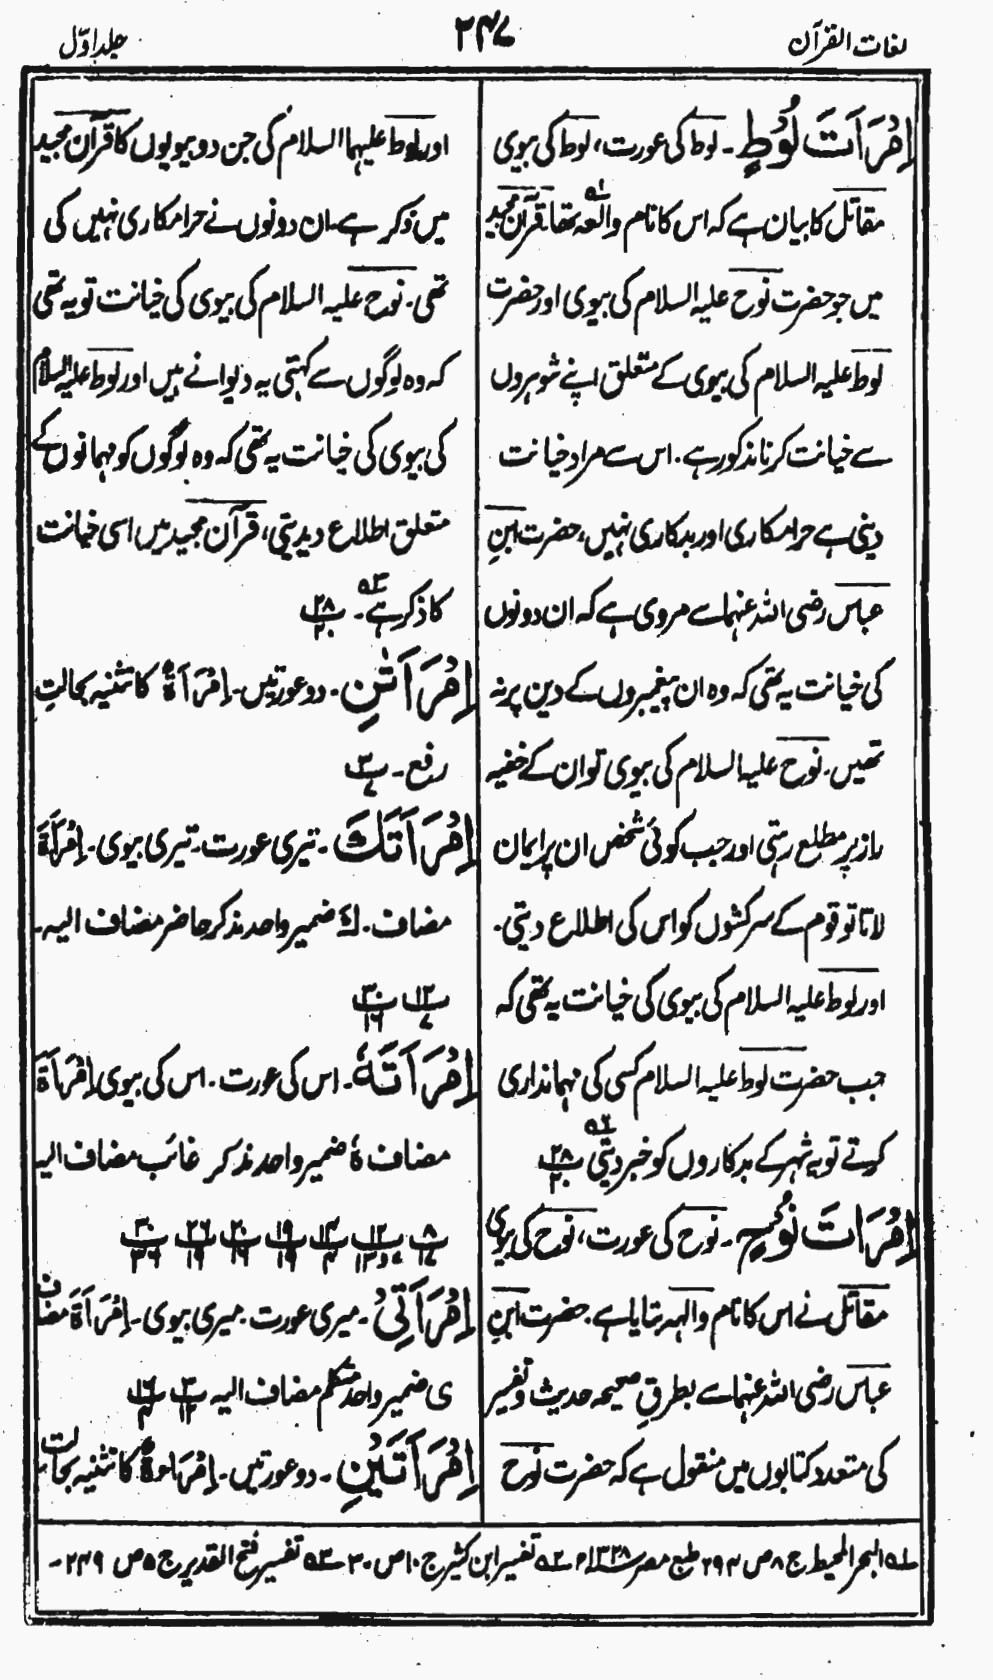 لغات القرآن
۲۴۷
جلد اوّل
اِمْرَاَتَ لُوْطٍ۔ لوط کی عورت، لوط کی بیوی
مقاتل کا بیان ہے کہ اس کا نام والعہ تھا۱ قرآن مجید
میں جو حضرت نوح علیہ السلام کی بیوی اور حضرت
لوط علیہ السلام کی بیوی کے متعلق اپنے شوہروں
سے خیانت کرنا مذکور ہے۔ اس سے مراد خیانت
دینی ہے حرامکاری اور بدکاری نہیں، حضرت ابنِ
عباس رضی اللہ عنہما سے مروی ہے کہ ان دونوں
کی خیانت یہ تھی کہ وہ ان پیغمبروں کے دین پر نہ
تھیں۔ نوح علیہ السلام کی بیوی تو ان کے خفیہ
راز پر مطلع رہتی اور جب کوئی شخص ان پر ایمان
لاتا تو قوم کے سرکشوں کو اس کی اطلاع دیتی۔
اور لوط علیہ السلام کی بیوی کی خیانت یہ تھی کہ
جب حضرت لوط علیہ السلام کسی کی مہمانداری
کرتے تو یہ شہر کے بدکاروں کو خبر دیتی۲ ۲۸/۲۰
اِمْرَاَتَ نُوْحٍ۔ نوح کی عورت، نوح کی بیوی
مقاتل نے اس کا نام والہہ بتایا ہے۔ حضرت ابنِ
عباس رضی اللہ عنہما سے بطرقِ صحیحہ حدیث و تفسیر
کی متعدد کتابوں میں منقول ہے کہ حضرت نوح
اور لوط علیہما السلام کی جن دو بیویوں کا قرآن مجید
میں ذکر ہے۔ ان دونوں نے حرامکاری نہیں کی
تھی۔ نوح علیہ السلام کی بیوی کی خیانت تو یہ تھی
کہ وہ لوگوں سے کہتی یہ دیوانے ہیں اور لوط علیہ السلام
کی بیوی کی خیانت یہ تھی کہ وہ لوگوں کو مہمانوں کے
متعلق اطلاع دیدیتی، قرآن مجید میں اسی خیانت
کا ذکر ہے۳۔ ۲۸/۲۰
اِمْرَاَتٰنِ۔ دو عورتیں۔ اِمْرَاَۃٌ کا تثنیہ بحالتِ
رفع۔ ۳/۷
اِمْرَاَتَكَ۔ تیری عورت۔ تیری بیوی۔ اِمْرَاَۃَ
مضاف۔ كَ ضمیر واحد مذکر حاضر مضاف الیہ۔
۱۲/۷ ۲۰/۱۶
اِمْرَاَتَهٗ۔ اس کی عورت۔ اس کی بیوی اِمْرَاَۃَ
مضاف هٗ ضمیر واحد مذکر غائب مضاف الیہ
اِمْرَاَتِیْ۔ میری عورت۔ میری بیوی۔ اِمْرَاَۃَ مضاف
ی ضمیر واحد متکلم مضاف الیہ ۳/۱۲ ۱۶/۴
اِمْرَاَتَيْنِ۔ دو عورتیں۔ اِمْرَاَۃٌ کا تثنیہ بحالت
۱؎ البحر المحیط ج ۸ ص ۲۹۴ طبع مصر ۱۳۲۸ھ ۲؎ تفسیر ابن کثیر ج ۱۰ ص ۳۰ ۳؎ تفسیر فتح القدیر ج ۵ ص ۲۴۹۔